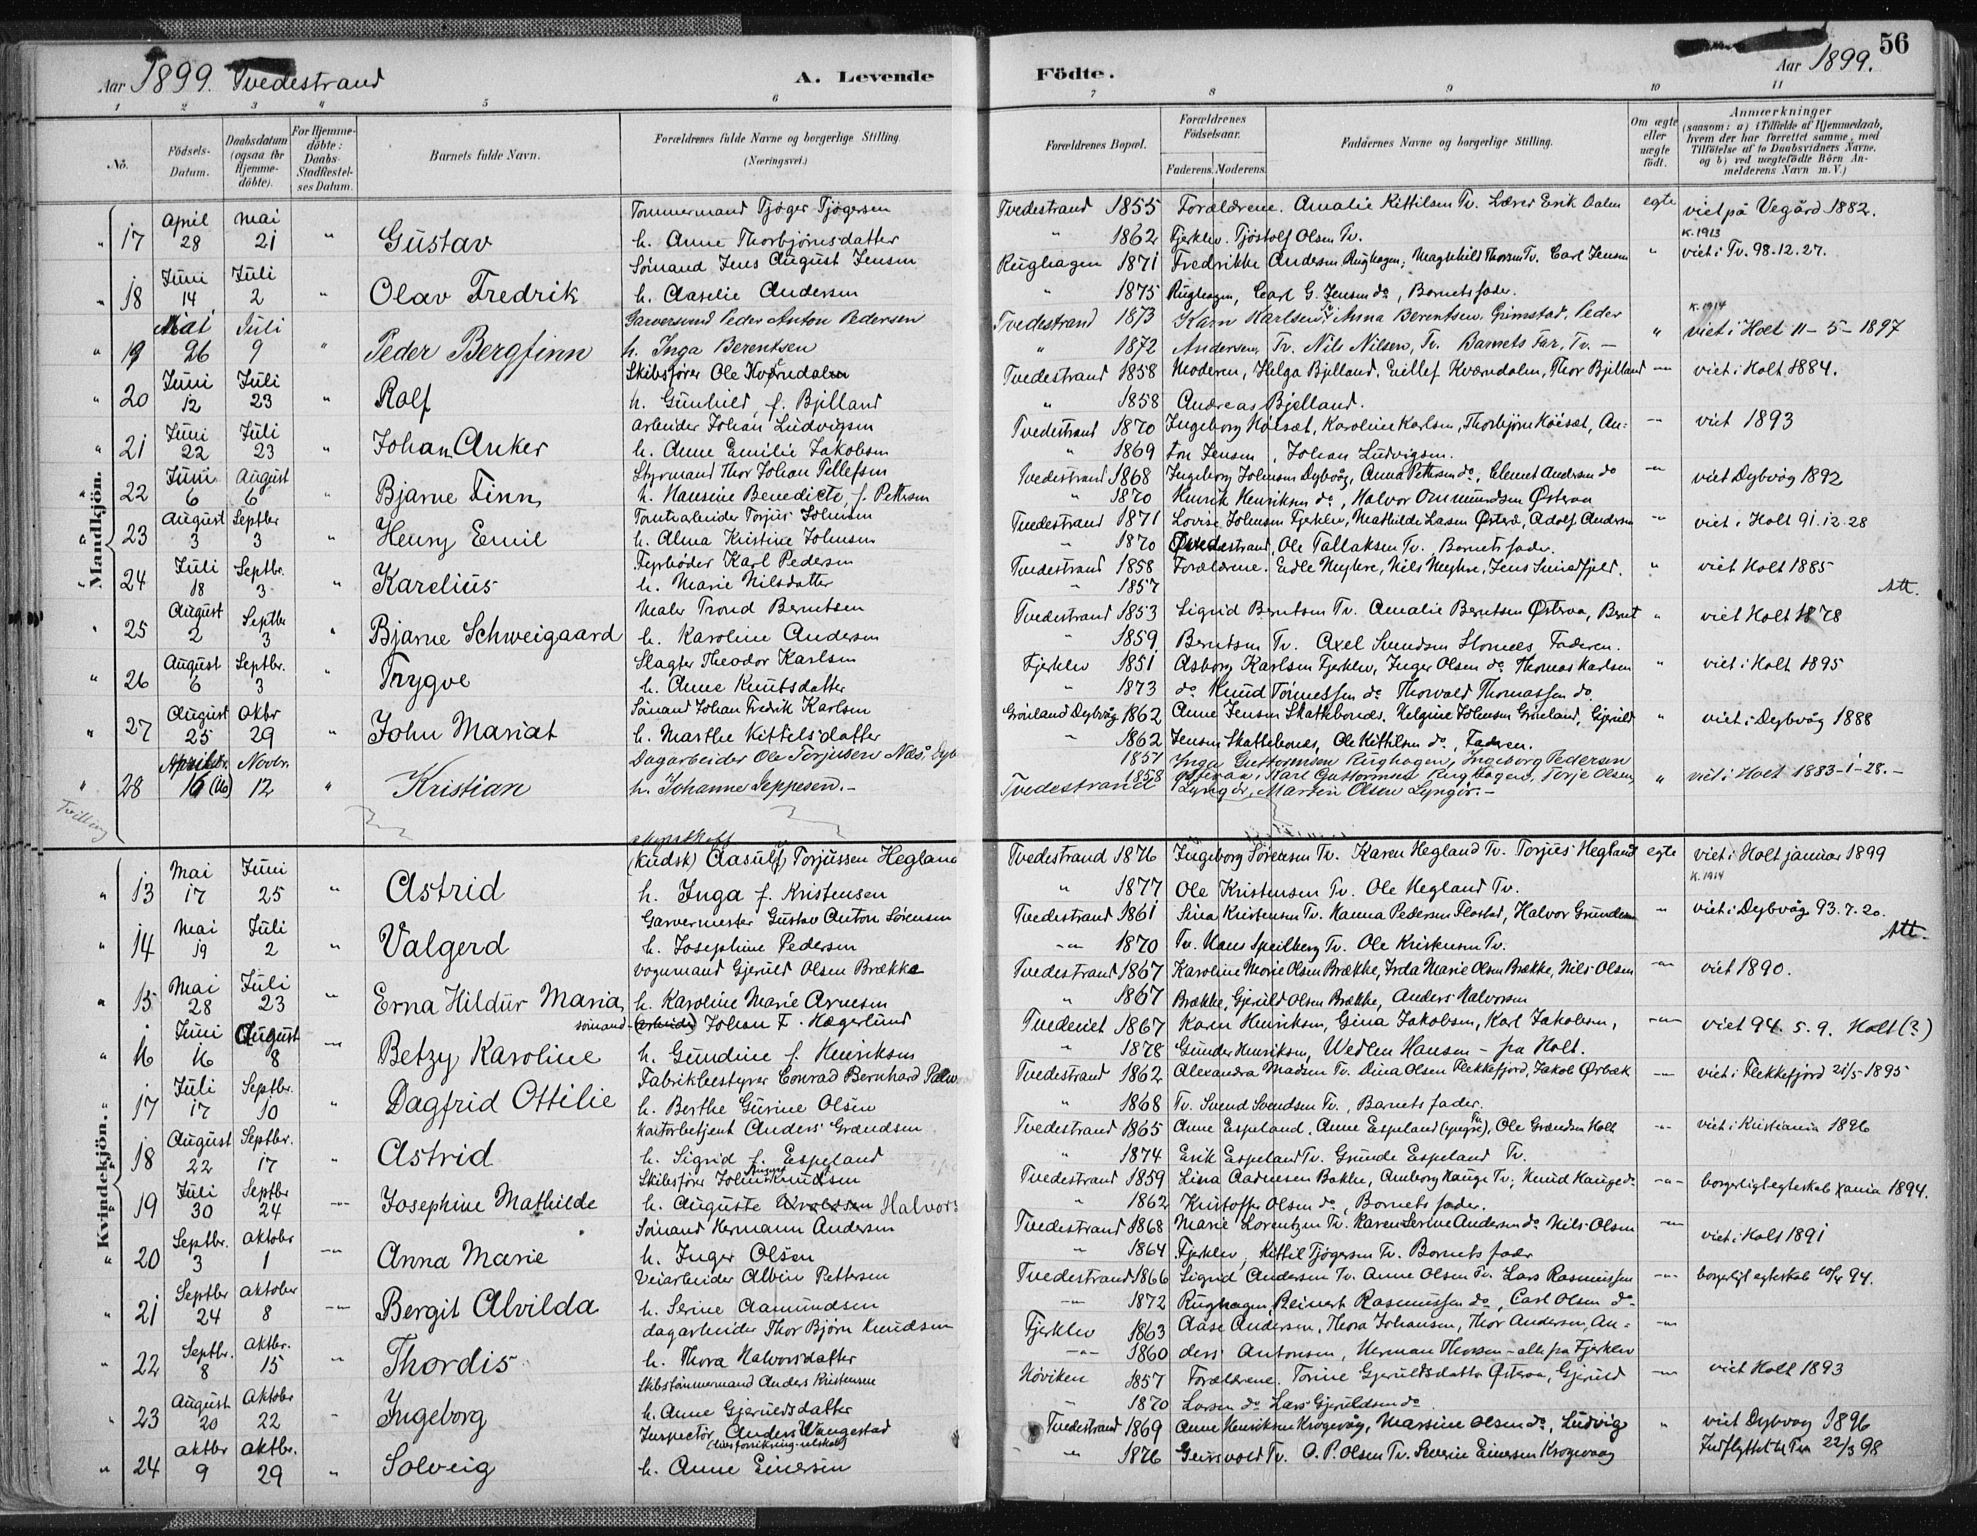 Aar 1899. Tvedestrand
A. Levende Födte.
Aar 1899.
56
1 2 3 4 5 6 7 8 9 10 11
No.
Födsels-Datum.
Daabsdatum (ogsaa for Hjemme-döbte).
For Hjemme-döbte: Daabs-Stadfæstel-ses Datum.
Barnets fulde Navn.
Forældrenes fulde Navne og borgerlige Stilling. (Næringsvei.)
Forældrenes Bopæl.
Forældrenes Födselsaar.
Faderens. Moderens.
Faddernes Navne og borgerlige Stilling.
Om ægte eller uægte födt.
Anmærkninger
(saasom: a) i Tilfælde af Hjemmedaab, hvem der har forrettet samme, med Tilföielse af to Daabsvidners Navne, og b) ved uægtefödte Börn Anmelderens Navn m. V.)
Mandkjön.
17 April 28 Mai 21 " Gustav Tømmermand Tjøger Tjøgersen Tvedestrand 1855 Forældrene. Amalie Kittilsen Tv. Lærer Erik Dalen egte viet på Vegård 1882.
h. Anne Thorbjørnsdatter " 1862 Fjerklev. Tjøstolf Olsen Tv. K. 1913
18 Juni 14 Juli 2 " Olav Fredrik Sømand Jens August Jensen Rughagen 1871 Fredrikke Andersen Rughagen, Magnhild Thorsen Tv. Carl Jensen " viet i Tv. 98.12.27.
h. Aaselie Andersen " 1875 Rughagen, Carl G. Jensen do, Barnets fader.
19 Mai 26 Juli 9 " Peder Bergfinn Garversvend Peder Anton Pedersen Tvedestrand 1873 Karn Karlsen Tv. Anna Berentsen, Grimstad, Peder " K. 1914 viet i Holt 11-5-1897
h. Inga Berentsen " 1872 Andersen, Tv. Nils Nilsen, Tv. Barnets Far, Tv. —
20 Juni 12 Juli 23 " Rolf Skibsfører Ole Kværndalen Tvedestrand 1858 Moderen, Helga Bjelland, Eillef Kværndalen, Thor Bjelland viet i Holt 1884.
h. Gunhild, f. Bjelland " 1858 Andreas Bjelland.
21 Juni 22 Juli 23 " Johan Anker Arbeider Johan Ludvigsen Tvedestrand 1870 Ingeborg Høisæt, Karoline Karlsen, Thorbjørn Høisæt, An: viet 1893
h. Anne Emilie Jakobsen " 1869 ton Jensen, Johan Ludvigsen.
22 Juni 6 August 6 " Bjarne Finn, Styrmand Thor Johan Tellefsen Tvedestrand 1868 Ingeborg Johnsen Dybvåg, Anna Pettersen do, Clemet Andersen do viet Dybvåg 1892
h. Hansine Benedicte f. Pettersen " 1870 Henrik Henriksen do, Halvor Ommundsen Østeraa
23 August 3 Septbr 3 " Henry Emil Tomtearbeider Torjus Johnsen Tvedestrand 1871 Lovise Johnsen Fjerklev, Mathilde Larsen Østerå, Adolf Andersen viet i Holt 91.12.28
h. Alma Kristine Johnsen " 1870 Tvedestrand, Ole Tallaksen Tv. Barnets fader.
24 Juli 18 Septbr. 3 " Karelius Fyrbøder Karl Pedersen Tvedestrand 1858 Forældrene. Edle Myhre, Nils Myhre, Jens Smedfjeld. " viet Holt 1885
h. Marie Nilsdatter " 1857 Att.
25 August 2 Septbr 3 " Bjarne Schweigaard Maler Trond Berntsen Tvedestrand 1853 Sigrid Berntsen Tv. Amalie Berntsen Østeraa, Bernt " viet Holt 1878
h. Karoline Andersen " 1859. Berntsen Tv. Axel Svendsen Faderen.
26 August 6 Septbr. 3 " Trygve Slagter Theodor Karlsen Fjerklev 1851 Asborg Karlsen Fjerklev, Inger Olsen do Thomas Karlsen " viet i Holt 1895
h. Anne Knutsdatter " 1873 do Knud Tønnessen do Thorvald Thomassen do
27 August 25 Oktbr 29 " John Mariat Sømand Johan Fredrik Karlsen Grønland Dybvåg 1862 Anne Jensen Skattebonæs, Helgine Johnsen Grønland, Gjeruld " viet i Dybvåg 1888
h. Marthe Kittelsdatter " 1862 Jensen Skattebonæs, Ole Kittilsen do, Faderen.
28 16 Novbr. 12 " Kristian Dagarbeider Ole Torjussen Næs, Dyb 1857 Inga Guttormsen Rughagen, Ingeborg Pedersen
Tvilling h. Johanne Jeppesen.- Tvedestrand 1858 Østeraa, Karl Guttormsen Rughagen, Torje Olsen, " viet i Holt 1883-1-28.-
Lyngør, Martin Olsen Lyngør.-
Kvindekjön.
13 Mai 17 Juni 25 " Astrid (Kudsk) Aasulf Torjussen Hegland Tvedestrand 1876 Ingeborg Sørensen Tv. Karen Hegland Tv. Torjus Hegland egte viet i Holt januar 1899
h. Inga f. Kristensen " 1877 Ole Kristensen Tv. Ole Hegland Tv. K. 1914
14 Mai 19 Juli 2 " Valgerd Garvermester Gustav Anton Sørensen Tvedestrand 1861 Sina Kristensen Tv. Hanna Pedersen Flostad, Halvor Gundersen viet i Dybvåg 93.7.20.
h. Josephine Pedersen 1870 Tv. Hans Speilberg Tv. Ole Kristensen Tv. Att.
15 Mai 28 Juli 23 Erna Hildur Maria Vognmand Gjeruld Olsen Brække Tvedestrand 1867 Karoline Marie Olsen Brække, Marie Olsen Brække, Nils Olsen viet 1890.
h. Karoline Marie Arnesen " 1867 Brække, Gjeruld Olsen Brække, Anders Halvorsen
16 Juni 16 August 8 Betzy Karoline sømand (Arbeider) Johan F. Hægerlund Tvederiet 1867 Karen Henriksen, Gina Jakobsen, Karl Jakobsen, viet 94.5.9. Holt (?)
h. Gundine f. Henriksen " 1878 Gunder Henriksen, Hansen - fra Holt.
17 Juli 17 Septbr. 10 " Dagfrid Ottilie Fabrikbestyrer Conrad Bernhard Tvedestrand 1862 Alexandra Madsen Tv. Dina Olsen Flekkefjord, Jakob Ørbæk viet i Flekkefjord 21/5-1895
h. Berthe Gurine Olsen " 1868 Tv. Svend Svendsen Tv., Barnets fader.
18 August 22 Septbr. 17 " Astrid Kontorbetjent Anders Grændsen Tvedestrand 1865 Anne Espeland, Anne Espeland (yngre) Tv., Ole Grændsen Holt viet i Kristiania 1896
h. Sigrid f. Espeland " 1874 Erik Espeland Tv. Grunde Espeland Tv.
19 Juli 30 Septbr 24 Josephine Mathilde Skibsfører John Knudsen Tvedestrand 1859 Lina Aadnesen Bakke, Amborg Hauge Tv, Knud Hauge do borgerligt egteskab Xania 1894.
h. Auguste Halvors " 1862 Kristoffer Olsen do, Barnets fader.
20 Septbr. 3 Oktobr 1 Anna Marie Sømand Hermann Andersen Tvedestrand 1868 Marie Lorentzen Tv. Karen Serine Andersen do. Nils Olsen viet i Holt 1891
h. Inger Olsen " 1864 Fjerklev, Kittil Tjøgersen Tv. Barnets fader
21 Septbr 24 Oktober 8 Bergit Alvilda Veiarbeider Albin Pettersen Tvedestrand 1866 Sigrid Andersen Tv. Anne Olsen Tv. Lars Rasmussen borgerligt egteskab 94.
h. Serine Aamundsen 1872 Rughagen, Beinert Rasmussen do, Carl Olsen do-
22 Septbr. 8 Oktbr. 15 Thordis dagarbeider Thor Bjørn Knudsen Fjerklev 1863 Aase Andersen, Thora Johansen, Thor Andersen, An:
h. Thora Halvorsdatter 1860 ders Antonsen, Herman Thorsen - alle fra Fjerklev
23 August 20 Oktober 22 Ingeborg Skibstømmermand Anders Kristensen Høviken 1857 Forældrene. Tomine Gjeruldsdatter Østeraa, Gjeruld viet Holt 1893
h. Anne Gjeruldsdatter " 1870 Larsen do Lars Gjeruldsen do
24 Oktbr 9 Oktbr. 29 " Solveig Inspectør Anders Vangestad (livsforsikring-selskab) Tvedestrand 1869 Anne Henriksen Krogevåg, Martine Olsen do, Ludvig " viet Dybvåg 1896
h. Anne Einersen " 1876 Tv. O. P. Olsen Tv. Severin Einersen Krogevaag Indflyttet til Tv. 22/3 98